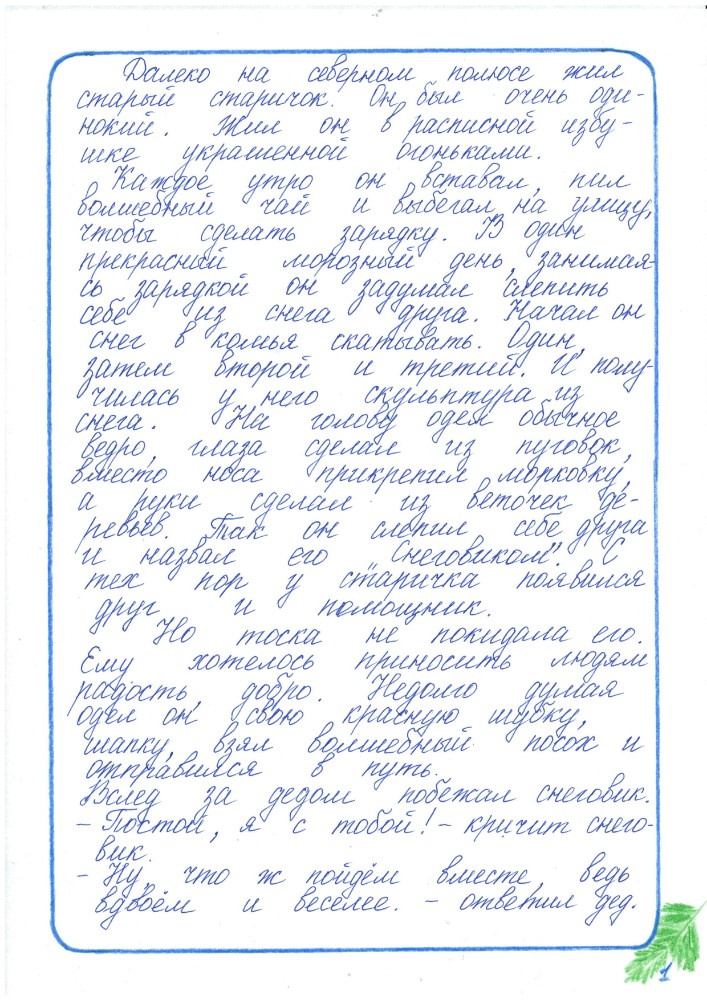 Далеко на северном полюсе жил
старый старичок. Он был очень оди-
нокий. Жил он в расписной избу-
шке украшенной огоньками.
Каждое утро он вставал, пил
волшебный чай и выбегал на улицу,
чтобы сделать зарядку. В один
прекрасный морозный день, занимая-
сь зарядкой он задумал слепить
себе из снега друга. Начал он
снег в комья скатывать. Один,
затем второй и третий. И полу-
чилась у него скульптура из
снега. На голову одел обычное
ведро, глаза сделал из пуговок,
вместо носа прикрепил морковку,
а руки сделал из веточек де-
ревьев. Так он слепил себе друга
и назвал его „Снеговиком". С
тех пор у старичка появился
друг и помощник.
Но тоска не покидала его.
Ему хотелось приносить людям
радость, добро. Недолго думая
одел он свою красную шубку,
шапку, взял волшебный посох и
отправился в путь.
Вслед за дедом побежал снеговик.
- Постой, я с тобой! - кричит снего-
вик.
- Ну, что ж пойдём вместе, ведь
вдвоём и веселее. - ответил дед.
1